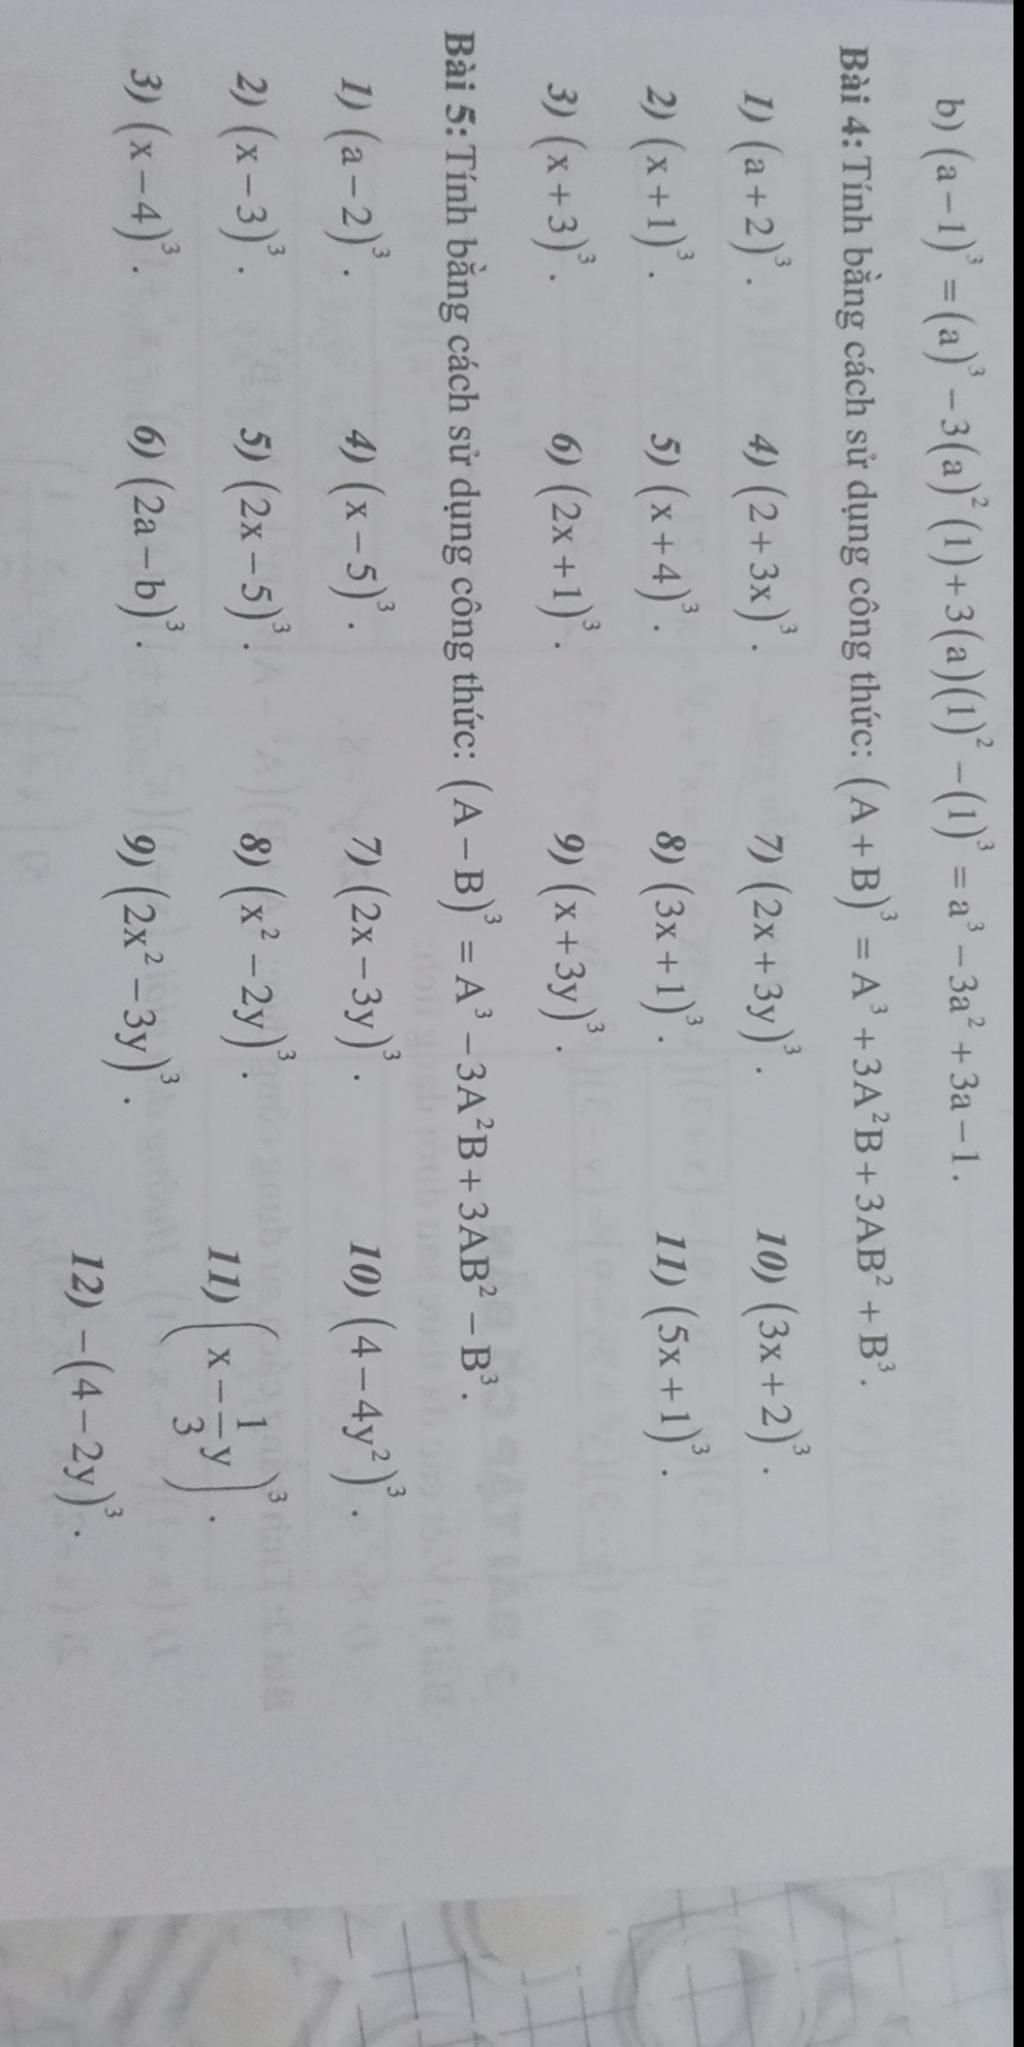 b) (a − 1)³ = (a)³ − 3(a)²(1) + 3(a)(1)² − (1)³ = a³ − 3a² + 3a − 1.
Bài 4: Tính bằng cách sử dụng công thức: (A + B)³ = A³ + 3A²B + 3AB² + B³.
1) (a + 2)³. 4) (2 + 3x)³. 7) (2x + 3y)³. 10) (3x + 2)³.
2) (x + 1)³. 5) (x + 4)³. 8) (3x + 1)³. 11) (5x + 1)³.
3) (x + 3)³. 6) (2x + 1)³. 9) (x + 3y)³.
Bài 5: Tính bằng cách sử dụng công thức: (A − B)³ = A³ − 3A²B + 3AB² − B³.
1) (a − 2)³. 4) (x − 5)³. 7) (2x − 3y)³. 10) (4 − 4y²)³.
2) (x − 3)³. 5) (2x − 5)³. 8) (x² − 2y)³. 11) (x − 1/3 y)³.
3) (x − 4)³. 6) (2a − b)³. 9) (2x² − 3y)³. 12) −(4 − 2y)³.